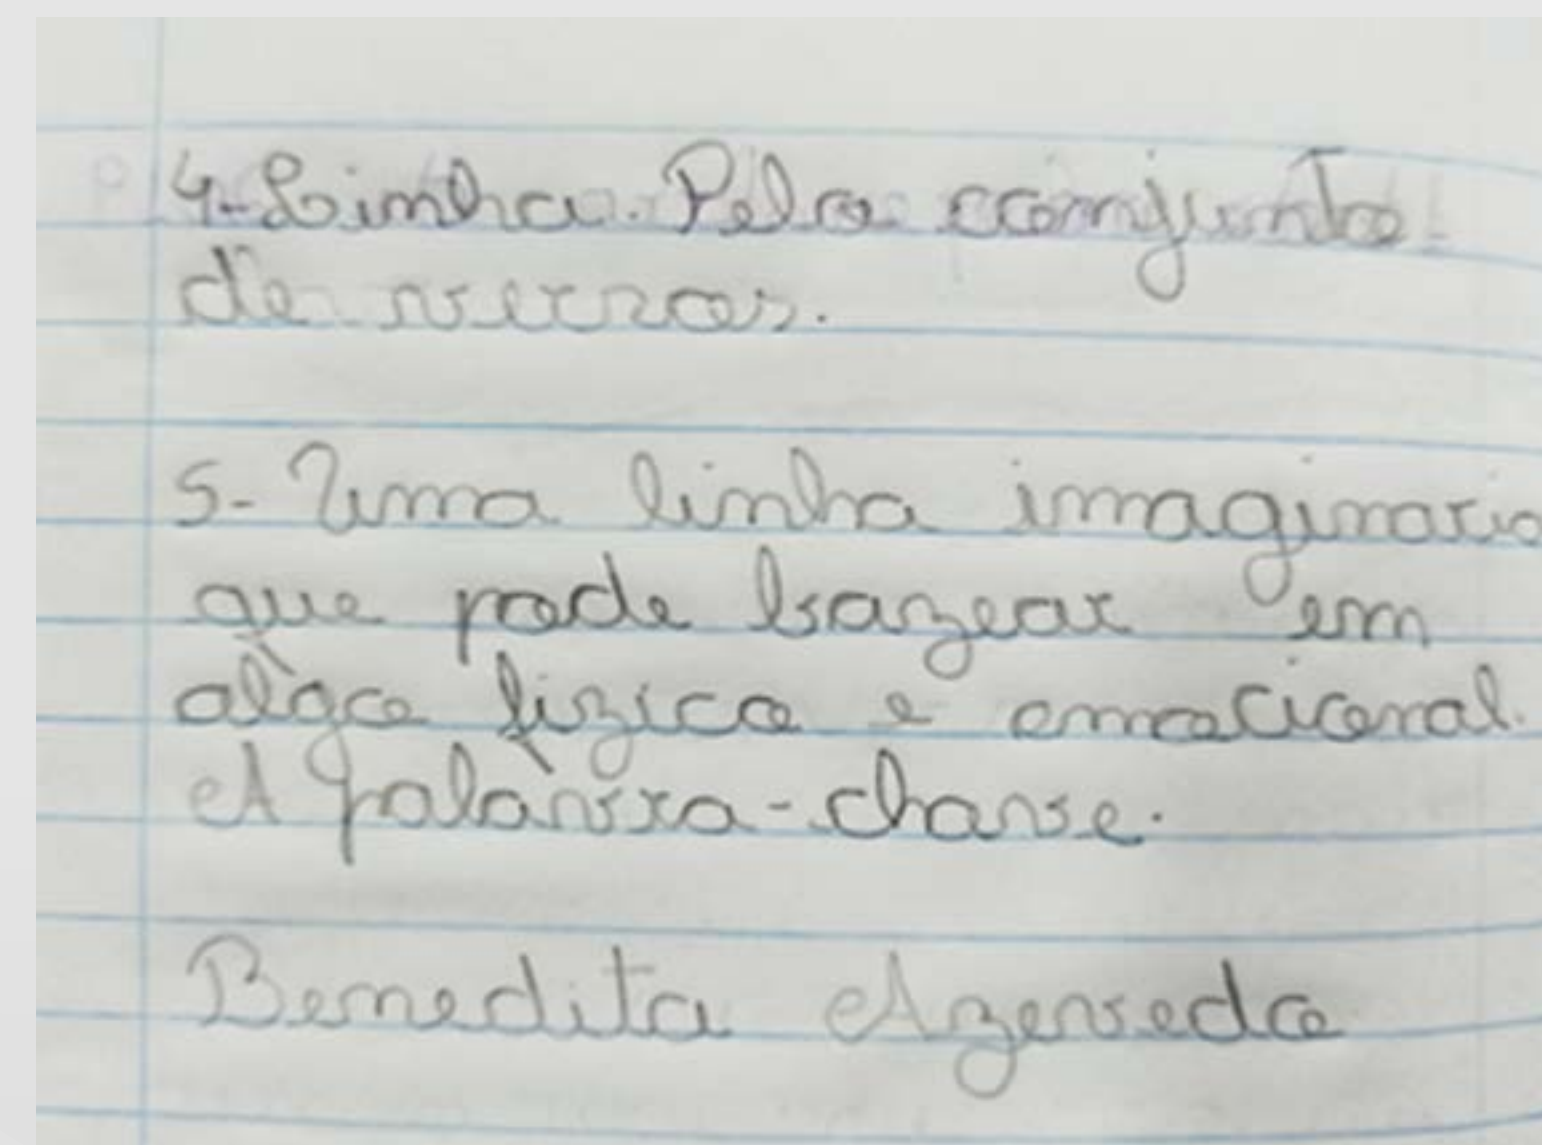 4-Linha. Pelo conjunto
de verzos.
5- Uma linha imaginaria
que pode bazear em
algo fizico e emocional.
A palavra-chave.
Benedita Azevedo